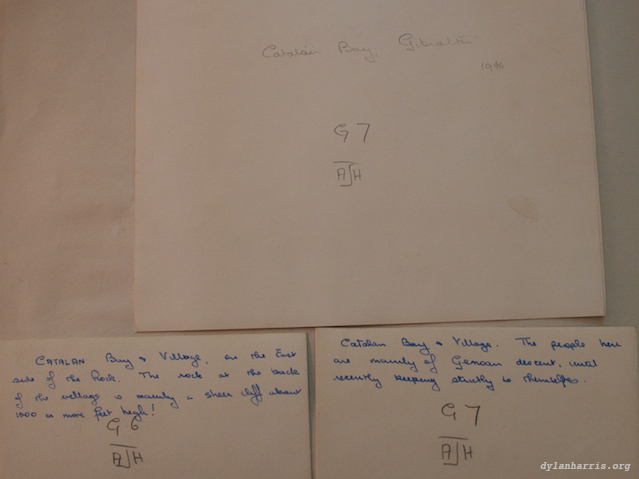 Catalan Bay, Gibraltar
1946
G 7
AJH
CATALAN Bay & Village, on the East
side of the Rock. The rock at the back
of the village is mainly a sheer cliff about
1000 or more feet high!
G 6
AJH
Catalan Bay & Village. The people here
are mainly of Genoan descent, until
recently keeping strictly to themselves.
G 7
AJH
dylanharris.org